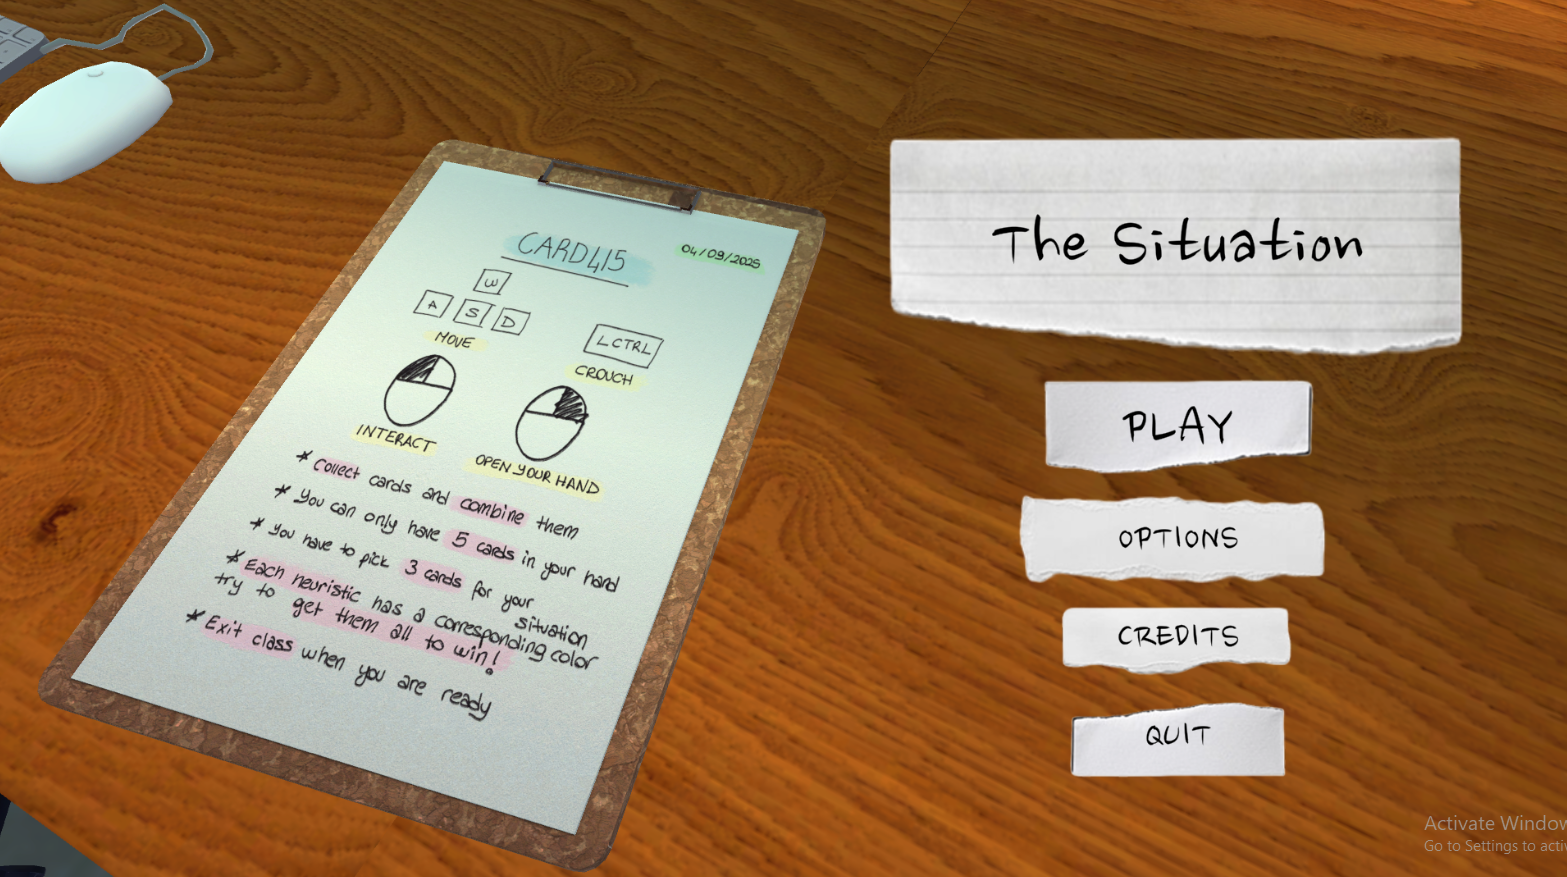 CARD415
04/09/2025
W
A S D
MOVE
LCTRL
CROUCH
INTERACT
OPEN YOUR HAND
* Collect cards and combine them
* You can only have 5 cards in your hand
* You have to pick 3 cards for your
situation
* Each heuristic has a corresponding color
try to get them all to win!
* Exit class when you are ready
The Situation
PLAY
OPTIONS
CREDITS
QUIT
Activate Window
Go to Settings to activ